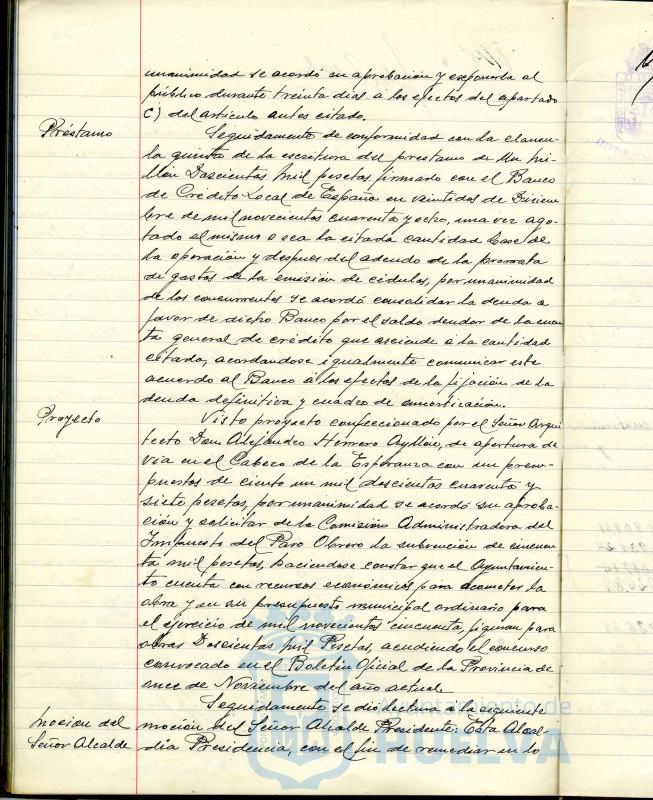 unanimidad se acordó su aprobación y exponerla al
público durante treinta días a los efectos del apartado
c) del artículo antes citado.
Préstamo
Seguidamente de conformidad con la clausu-
la quinta de la escritura del prestamo de Un mi-
llon Doscientas mil pesetas firmado con el Banco
de Crédito Local de España en veintidos de Diciem-
bre de mil novecientos cuarenta y ocho, una vez ago-
tado el mismo o sea la citada cantidad base de
la operación y despues del adeudo de la prorrata
de gastos de la emisión de cédulas, por unanimidad
de los concurrentes se acordó consolidar la deuda a
favor de dicho Banco por el saldo deudor de la cuen
ta general de crédito que asciende a la cantidad
citada, acordandose igualmente comunicar este
acuerdo al Banco a los efectos de la fijación de la
deuda definitiva y cuadro de amortización.
Proyecto
Visto proyecto confeccionado por el Señor Arqui
tecto Don Alejandro Herrero Ayllón, de apertura de
via en el Cabezo de la Esperanza con un presu-
puestos de ciento un mil doscientas cuarenta y
siete pesetas, por unanimidad se acordó su aproba-
ción y solicitar de la Comisión Administradora del
Impuesto del Paro Obrero la subvención de cincuen
ta mil pesetas, haciendose constar que el Ayuntamien-
to cuenta con recursos económicos para acometer la
obra y en su presupuesto municipal ordinario para
el ejercicio de mil novecientos cincuenta, figuran para
obras Doscientas mil Pesetas, acudiendo al concurso
convocado en el Boletin Oficial de la Provincia de
once de Noviembre del año actual.
Mocion del
Señor Alcalde
Seguidamente se dio lectura a la siguiente
moción del Señor Alcalde Presidente: Esta Alcal-
dia Presidencia, con el fin de remediar en lo
Ayuntamiento de
HUELVA